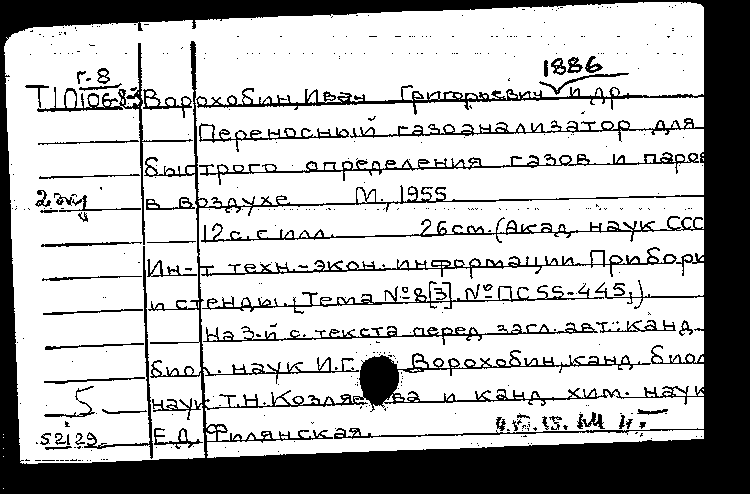 1886
Г-8
П106-83 Ворохобин, Иван Григорьевич и др.
Переносный газоанализатор для
быстрого определения газов и паров
2 экз в воздухе М., 1955.
12 с. с илл. 26 см. (Акад. наук ССС
Ин-т техн.-экон. информации. Приборы
и стенды. [Тема №8[3]. № ПС 55-445]).
На 3-й с. текста перед загл. авт.: канд.
биол. наук И.Г. Ворохобин, канд. биол
5 наук Т.Н. и канд. хим. наук
52129 Е.Д. Филянская.